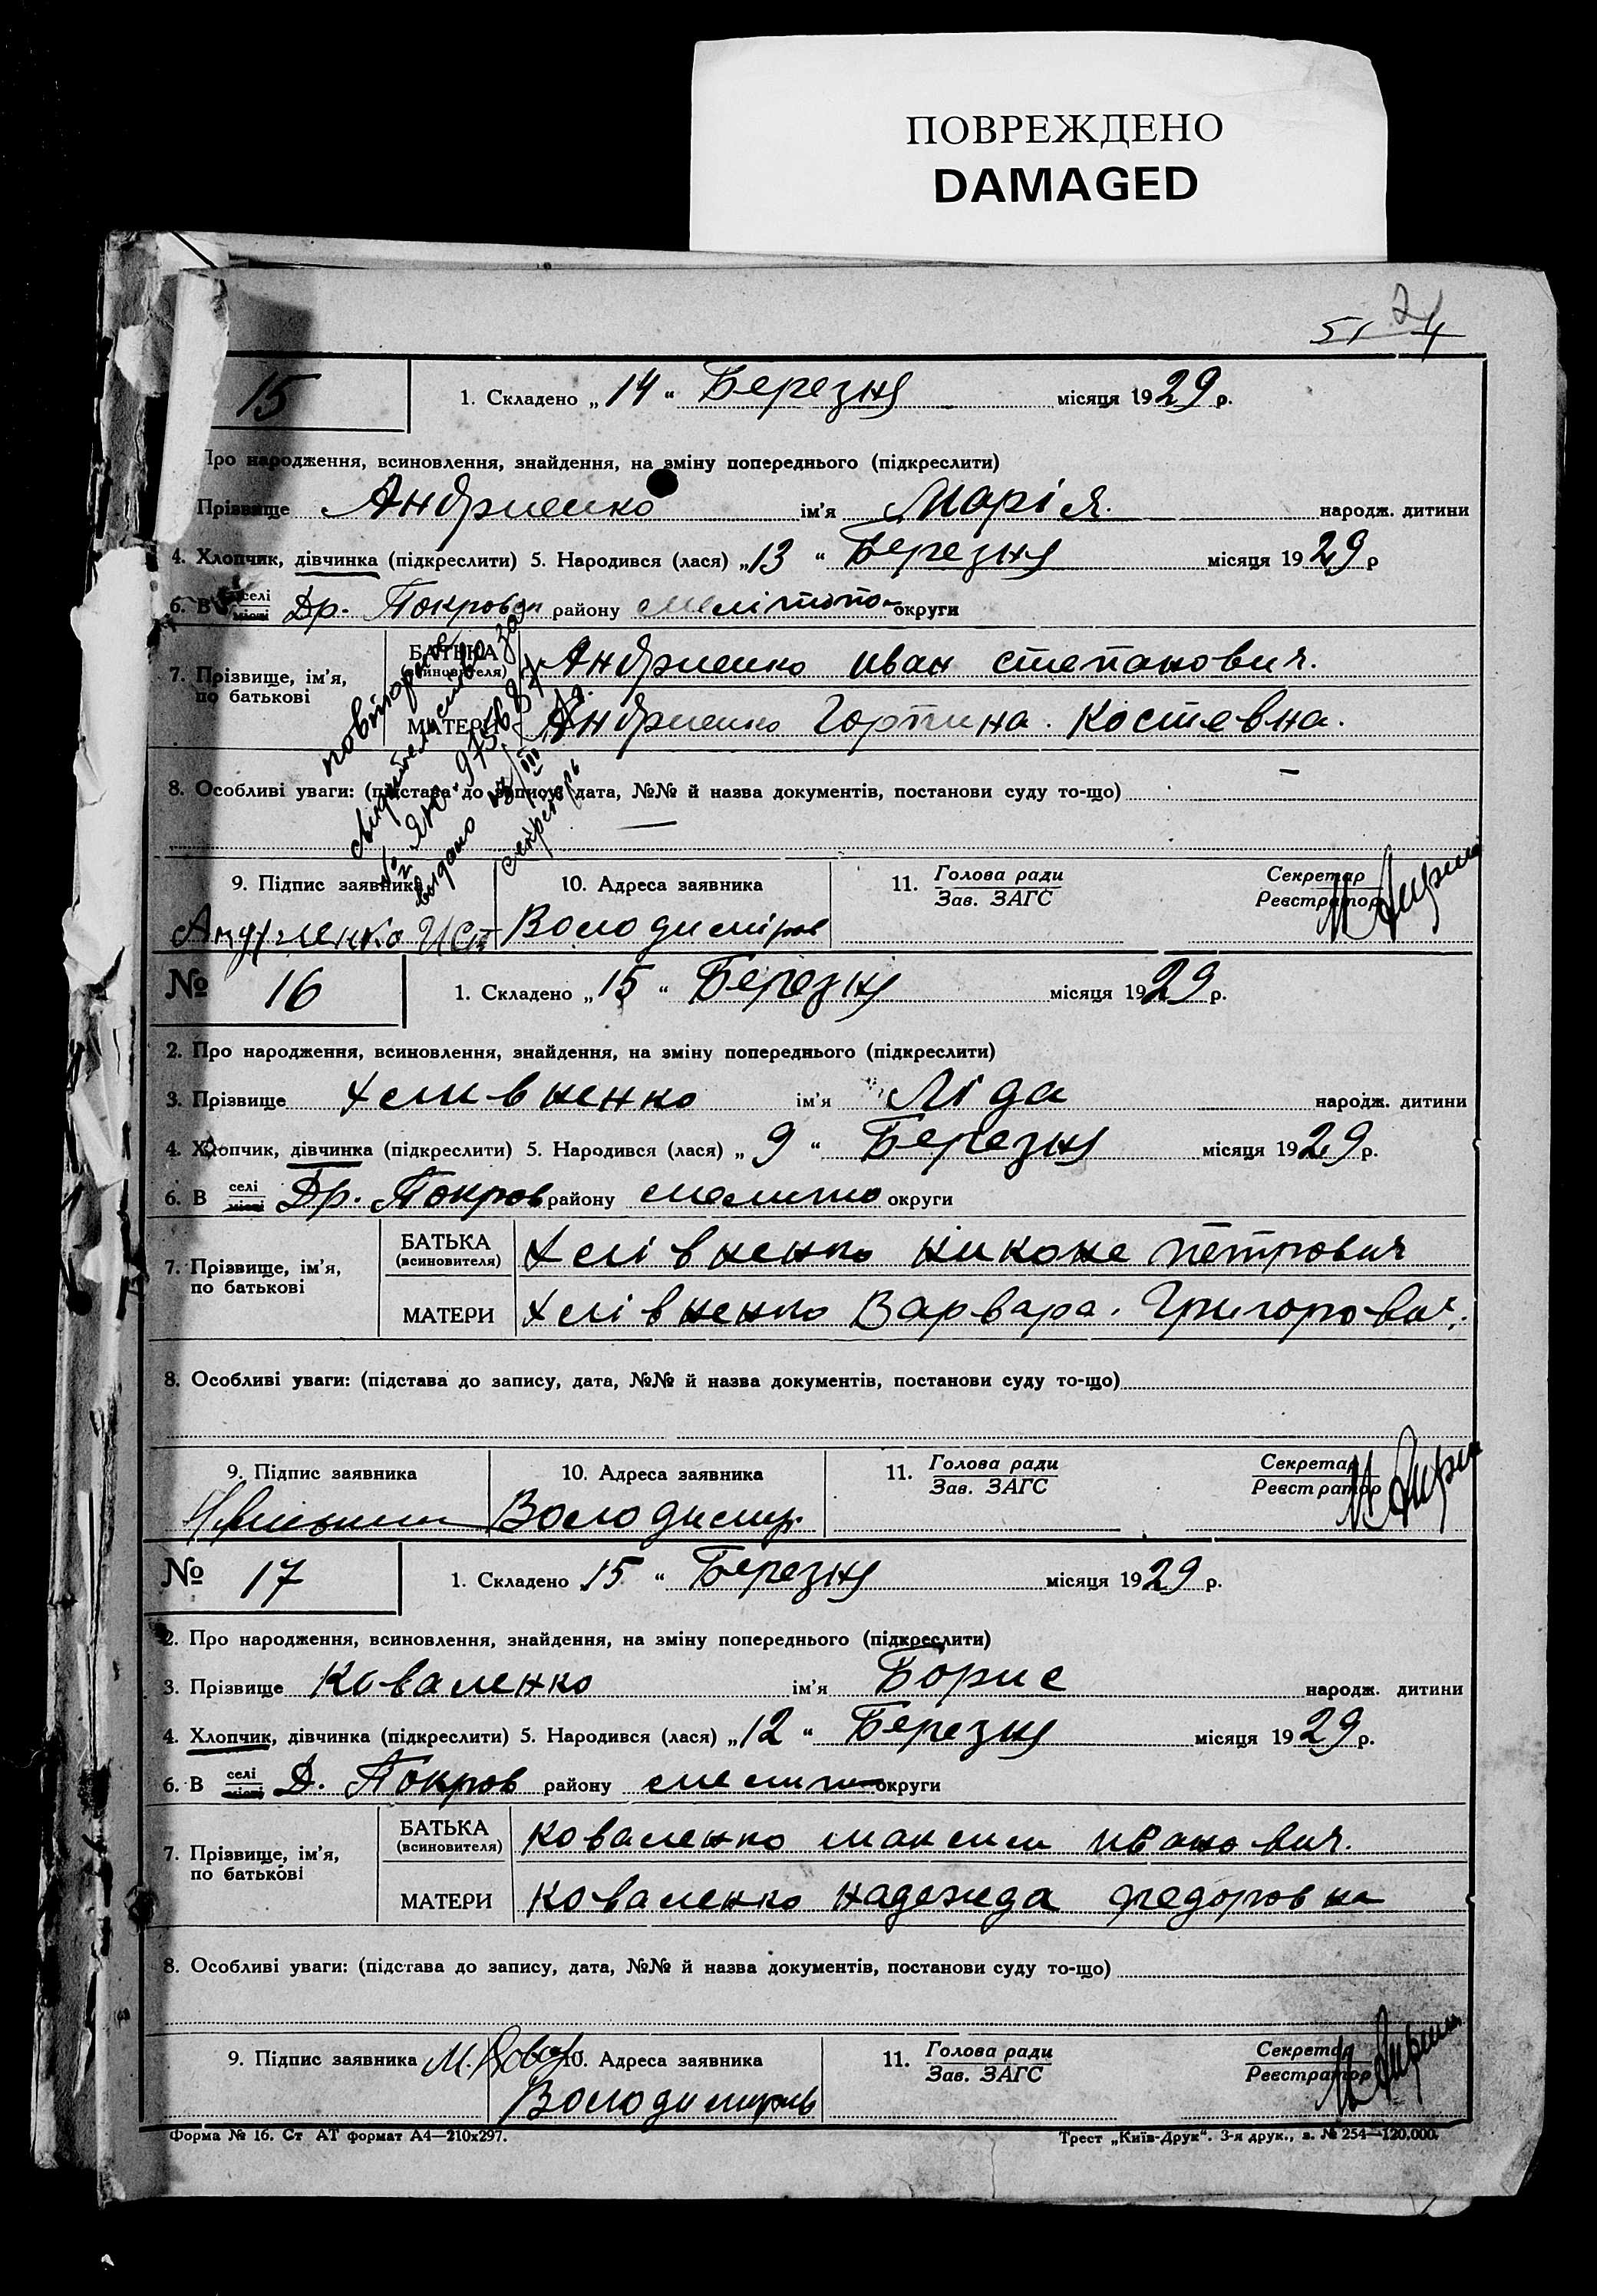 ПОВРЕЖДЕНО
DAMAGED
51 24
15
1. Складено „ 14 “ Березня місяця 1929 р.
Про народження, всиновлення, знайдення, на зміну попереднього (підкреслити)
Прізвище Андриенко ім’я Марія народж. дитини
4. Хлопчик, дівчинка (підкреслити) 5. Народився (лася) „ 13 “ Березня місяця 1929 р
6. В селі місті Др. Покровск району мелітопо- округи
7. Прізвище, ім’я, по батькові
БАТЬКА (всиновителя) Андриенко иван степанович.
МАТЕРИ Андриенко Горпина. Костевна.
повторное
свидетельство за
№ ЯЮ. 975687
выдано
секретарь
8. Особливі уваги: (підстава до запису, дата, №№ й назва документів, постанови суду то-що) —
—
9. Підпис заявника 10. Адреса заявника 11. Голова ради Зав. ЗАГС Секретар Реєстратор
Андриенко И Ст Володиміров
№ 16 1. Складено „ 15 “ Березня місяця 1929 р.
2. Про народження, всиновлення, знайдення, на зміну попереднього (підкреслити)
3. Прізвище Хемвненко ім’я Ліда народж. дитини
4. Хлопчик, дівчинка (підкреслити) 5. Народився (лася) „ 9 “ Березня місяця 1929 р.
6. В селі місті Др. Покров району мелито округи
7. Прізвище, ім’я, по батькові
БАТЬКА (всиновителя) никоне петрович
МАТЕРИ Варвара. Григоровн.
8. Особливі уваги: (підстава до запису, дата, №№ й назва документів, постанови суду то-що)
9. Підпис заявника 10. Адреса заявника 11. Голова ради Зав. ЗАГС Секретар Реєстратор
Володимир.
№ 17 1. Складено 15 “ Березня місяця 1929 р.
2. Про народження, всиновлення, знайдення, на зміну попереднього (підкреслити)
3. Прізвище Коваленко ім’я Борис народж. дитини
4. Хлопчик, дівчинка (підкреслити) 5. Народився (лася) „ 12 “ Березня місяця 1929 р.
6. В селі місті Д. Покров району мелит округи
7. Прізвище, ім’я, по батькові
БАТЬКА (всиновителя) Коваленко максим иванович.
МАТЕРИ Коваленко надежда федоровна
8. Особливі уваги: (підстава до запису, дата, №№ й назва документів, постанови суду то-що)
9. Підпис заявника М. Ковал 10. Адреса заявника 11. Голова ради Зав. ЗАГС Секретар Реєстратор
Володимиров
Форма № 16. Ст АТ формат А4—210х297. Трест „Київ-Друк“. 3-я друк., з. № 254—120.000.